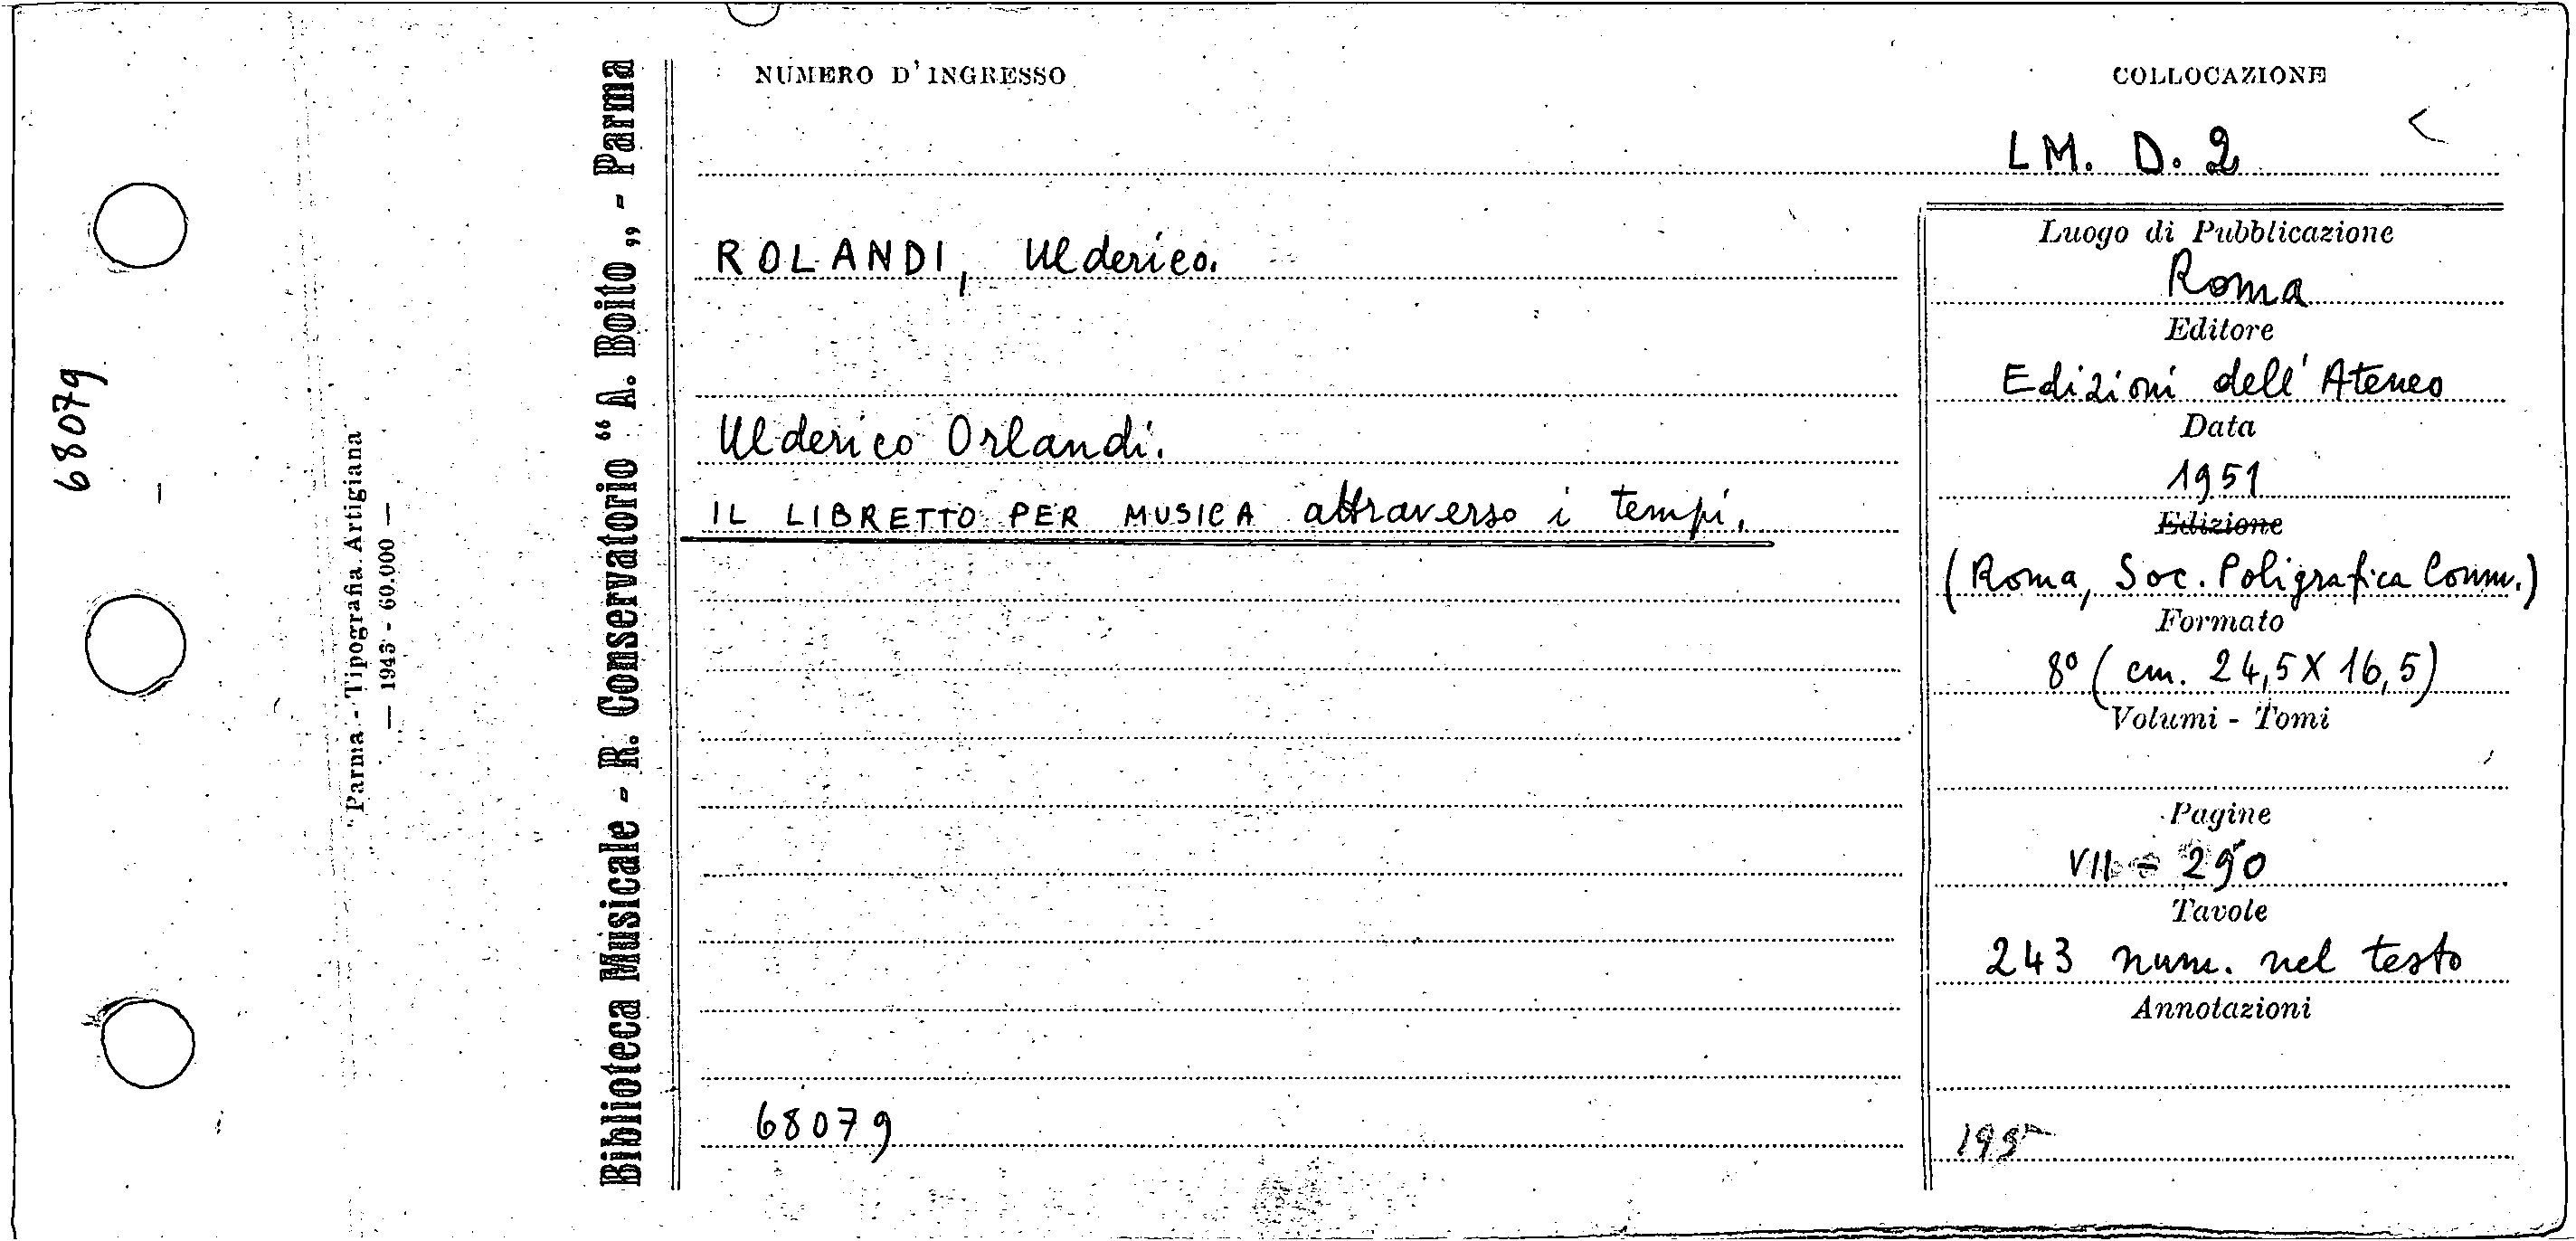 68079
Parma - Tipografia Artigiana
— 1943 - 60.000 —
Biblioteca Musicale - R. Conservatorio “ A. Boito „ - Parma
NUMERO D'INGRESSO
COLLOCAZIONE
LM. D. 2
ROLANDI, Ulderico.
Ulderico Orlandi.
IL LIBRETTO PER MUSICA attraverso i tempi.
68079
Luogo di Pubblicazione
Roma
Editore
Edizioni dell'Ateneo
Data
1951
Edizione
(Roma, Soc. Poligrafica Comm.)
Formato
8° (cm. 24,5 X 16,5)
Volumi - Tomi
Pagine
VII - 290
Tavole
243 num. nel testo
Annotazioni